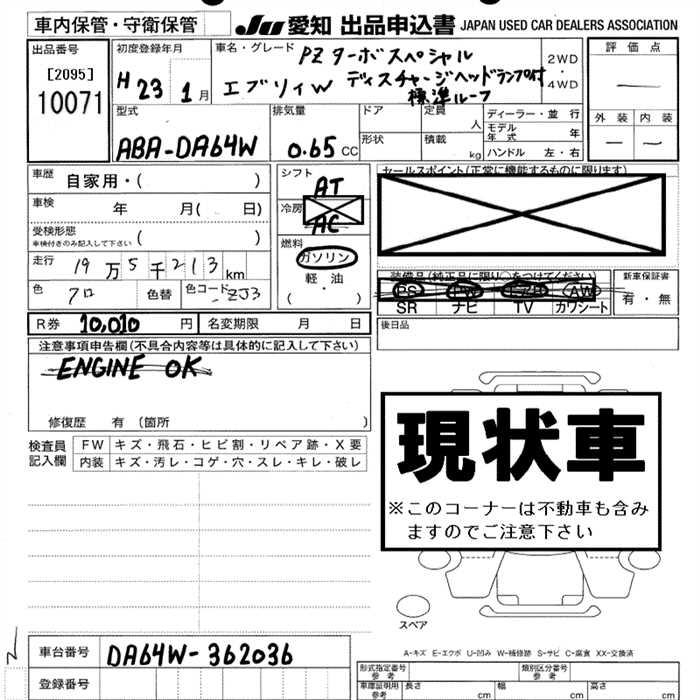 車内保管・守衛保管
JU 愛知 出品申込書 JAPAN USED CAR DEALERS ASSOCIATION
出品番号
[2095]
10071
初度登録年月
H 23 1月
車名・グレード
PZターボスペシャル
エブリィW ディスチャージヘッドランプ付
標準ルーフ
2WD
・
4WD
評価点
—
外装 内装
— —
型式
ABA-DA64W
排気量
0.65 CC
ドア
形状
定員
人
積載
kg
ディーラー・並行
モデル年式 年
ハンドル 左・右
車歴 自家用・( )
車検 年 月( 日)
受検形態
車検付きのみ記入して下さい ( )
走行 19万5千213km
色 クロ 色替 色コード ZJ3
シフト
AT
冷房
AC
燃料
ガソリン
・
軽・油
( )
セールスポイント(正常に機能するものに限ります)
装備品(純正品に限り○をつけてください)
PS PW エアB AW
SR ナビ TV カワシート
新車保証書
有・無
R券 10,010 円 名変期限 月 日
後日品
注意事項申告欄(不具合内容等は具体的に記入して下さい)
ENGINE OK
修復歴 有 (箇所 )
検査員
記入欄
FW キズ・飛石・ヒビ割・リペア跡・X要
内装 キズ・汚レ・コゲ・穴・スレ・キレ・破レ
現状車
※このコーナーは不動車も含み
ますのでご注意下さい
スペア
A-キズ E-エクボ U-凹み W-補修跡 S-サビ C-腐食 XX-交換済
車台番号 DA64W-362036
登録番号
形式指定番号
参考
類別区分番号
参考
車庫証明用
参考
長さ cm 幅 cm 高さ cm